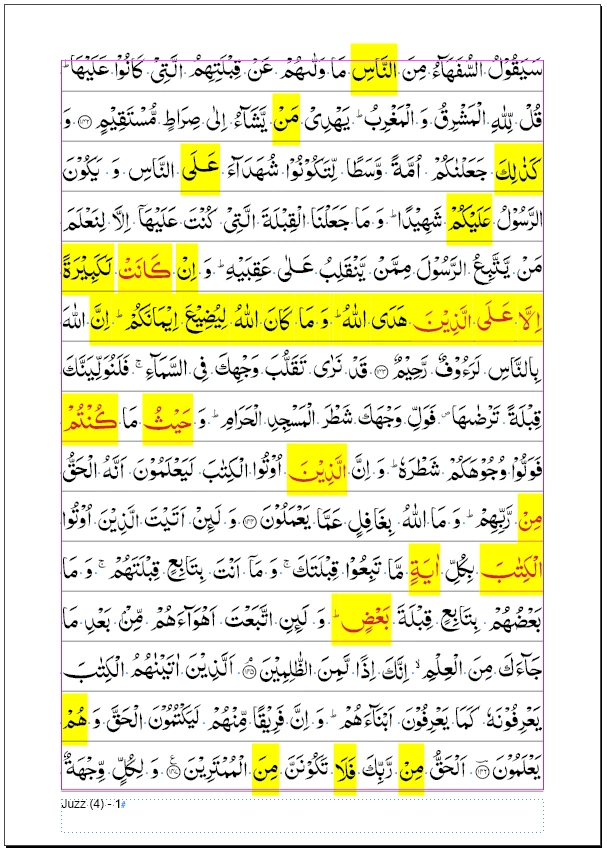 سَيَقُوْلُ السُّفَهَآءُ مِنَ النَّاسِ مَا وَلّٰىهُمْ عَنْ قِبْلَتِهِمُ الَّتِيْ كَانُوْا عَلَيْهَا ؕ
قُلْ لِّلّٰهِ الْمَشْرِقُ وَ الْمَغْرِبُ ؕ يَهْدِيْ مَنْ يَّشَآءُ اِلٰى صِرَاطٍ مُّسْتَقِيْمٍ ۝۱۴۲ وَ
كَذٰلِكَ جَعَلْنٰكُمْ اُمَّةً وَّسَطًا لِّتَكُوْنُوْا شُهَدَآءَ عَلَى النَّاسِ وَ يَكُوْنَ
الرَّسُوْلُ عَلَيْكُمْ شَهِيْدًا ؕ وَ مَا جَعَلْنَا الْقِبْلَةَ الَّتِيْ كُنْتَ عَلَيْهَاۤ اِلَّا لِنَعْلَمَ
مَنْ يَّتَّبِعُ الرَّسُوْلَ مِمَّنْ يَّنْقَلِبُ عَلٰى عَقِبَيْهِ ؕ وَ اِنْ كَانَتْ لَكَبِيْرَةً
اِلَّا عَلَى الَّذِيْنَ هَدَى اللّٰهُ ؕ وَ مَا كَانَ اللّٰهُ لِيُضِيْعَ اِيْمَانَكُمْ ؕ اِنَّ اللّٰهَ
بِالنَّاسِ لَرَءُوْفٌ رَّحِيْمٌ ۝۱۴۳ قَدْ نَرٰى تَقَلُّبَ وَجْهِكَ فِي السَّمَآءِ ۚ فَلَنُوَلِّيَنَّكَ
قِبْلَةً تَرْضٰىهَا ۪ فَوَلِّ وَجْهَكَ شَطْرَ الْمَسْجِدِ الْحَرَامِ ؕ وَ حَيْثُ مَا كُنْتُمْ
فَوَلُّوْا وُجُوْهَكُمْ شَطْرَهٗ ؕ وَ اِنَّ الَّذِيْنَ اُوْتُوا الْكِتٰبَ لَيَعْلَمُوْنَ اَنَّهُ الْحَقُّ
مِنْ رَّبِّهِمْ ؕ وَ مَا اللّٰهُ بِغَافِلٍ عَمَّا يَعْمَلُوْنَ ۝۱۴۴ وَ لَئِنْ اَتَيْتَ الَّذِيْنَ اُوْتُوا
الْكِتٰبَ بِكُلِّ اٰيَةٍ مَّا تَبِعُوْا قِبْلَتَكَ ۚ وَ مَاۤ اَنْتَ بِتَابِعٍ قِبْلَتَهُمْ ۚ وَ مَا
بَعْضُهُمْ بِتَابِعٍ قِبْلَةَ بَعْضٍ ؕ وَ لَئِنِ اتَّبَعْتَ اَهْوَآءَهُمْ مِّنْۢ بَعْدِ مَا
جَآءَكَ مِنَ الْعِلْمِ ۙ اِنَّكَ اِذًا لَّمِنَ الظّٰلِمِيْنَ ۝۱۴۵ اَلَّذِيْنَ اٰتَيْنٰهُمُ الْكِتٰبَ
يَعْرِفُوْنَهٗ كَمَا يَعْرِفُوْنَ اَبْنَآءَهُمْ ؕ وَ اِنَّ فَرِيْقًا مِّنْهُمْ لَيَكْتُمُوْنَ الْحَقَّ وَ هُمْ
يَعْلَمُوْنَ ۝۱۴۶ اَلْحَقُّ مِنْ رَّبِّكَ فَلَا تَكُوْنَنَّ مِنَ الْمُمْتَرِيْنَ ۝۱۴۷ وَ لِكُلٍّ وِّجْهَةٌ
Juzz (4) - 1#